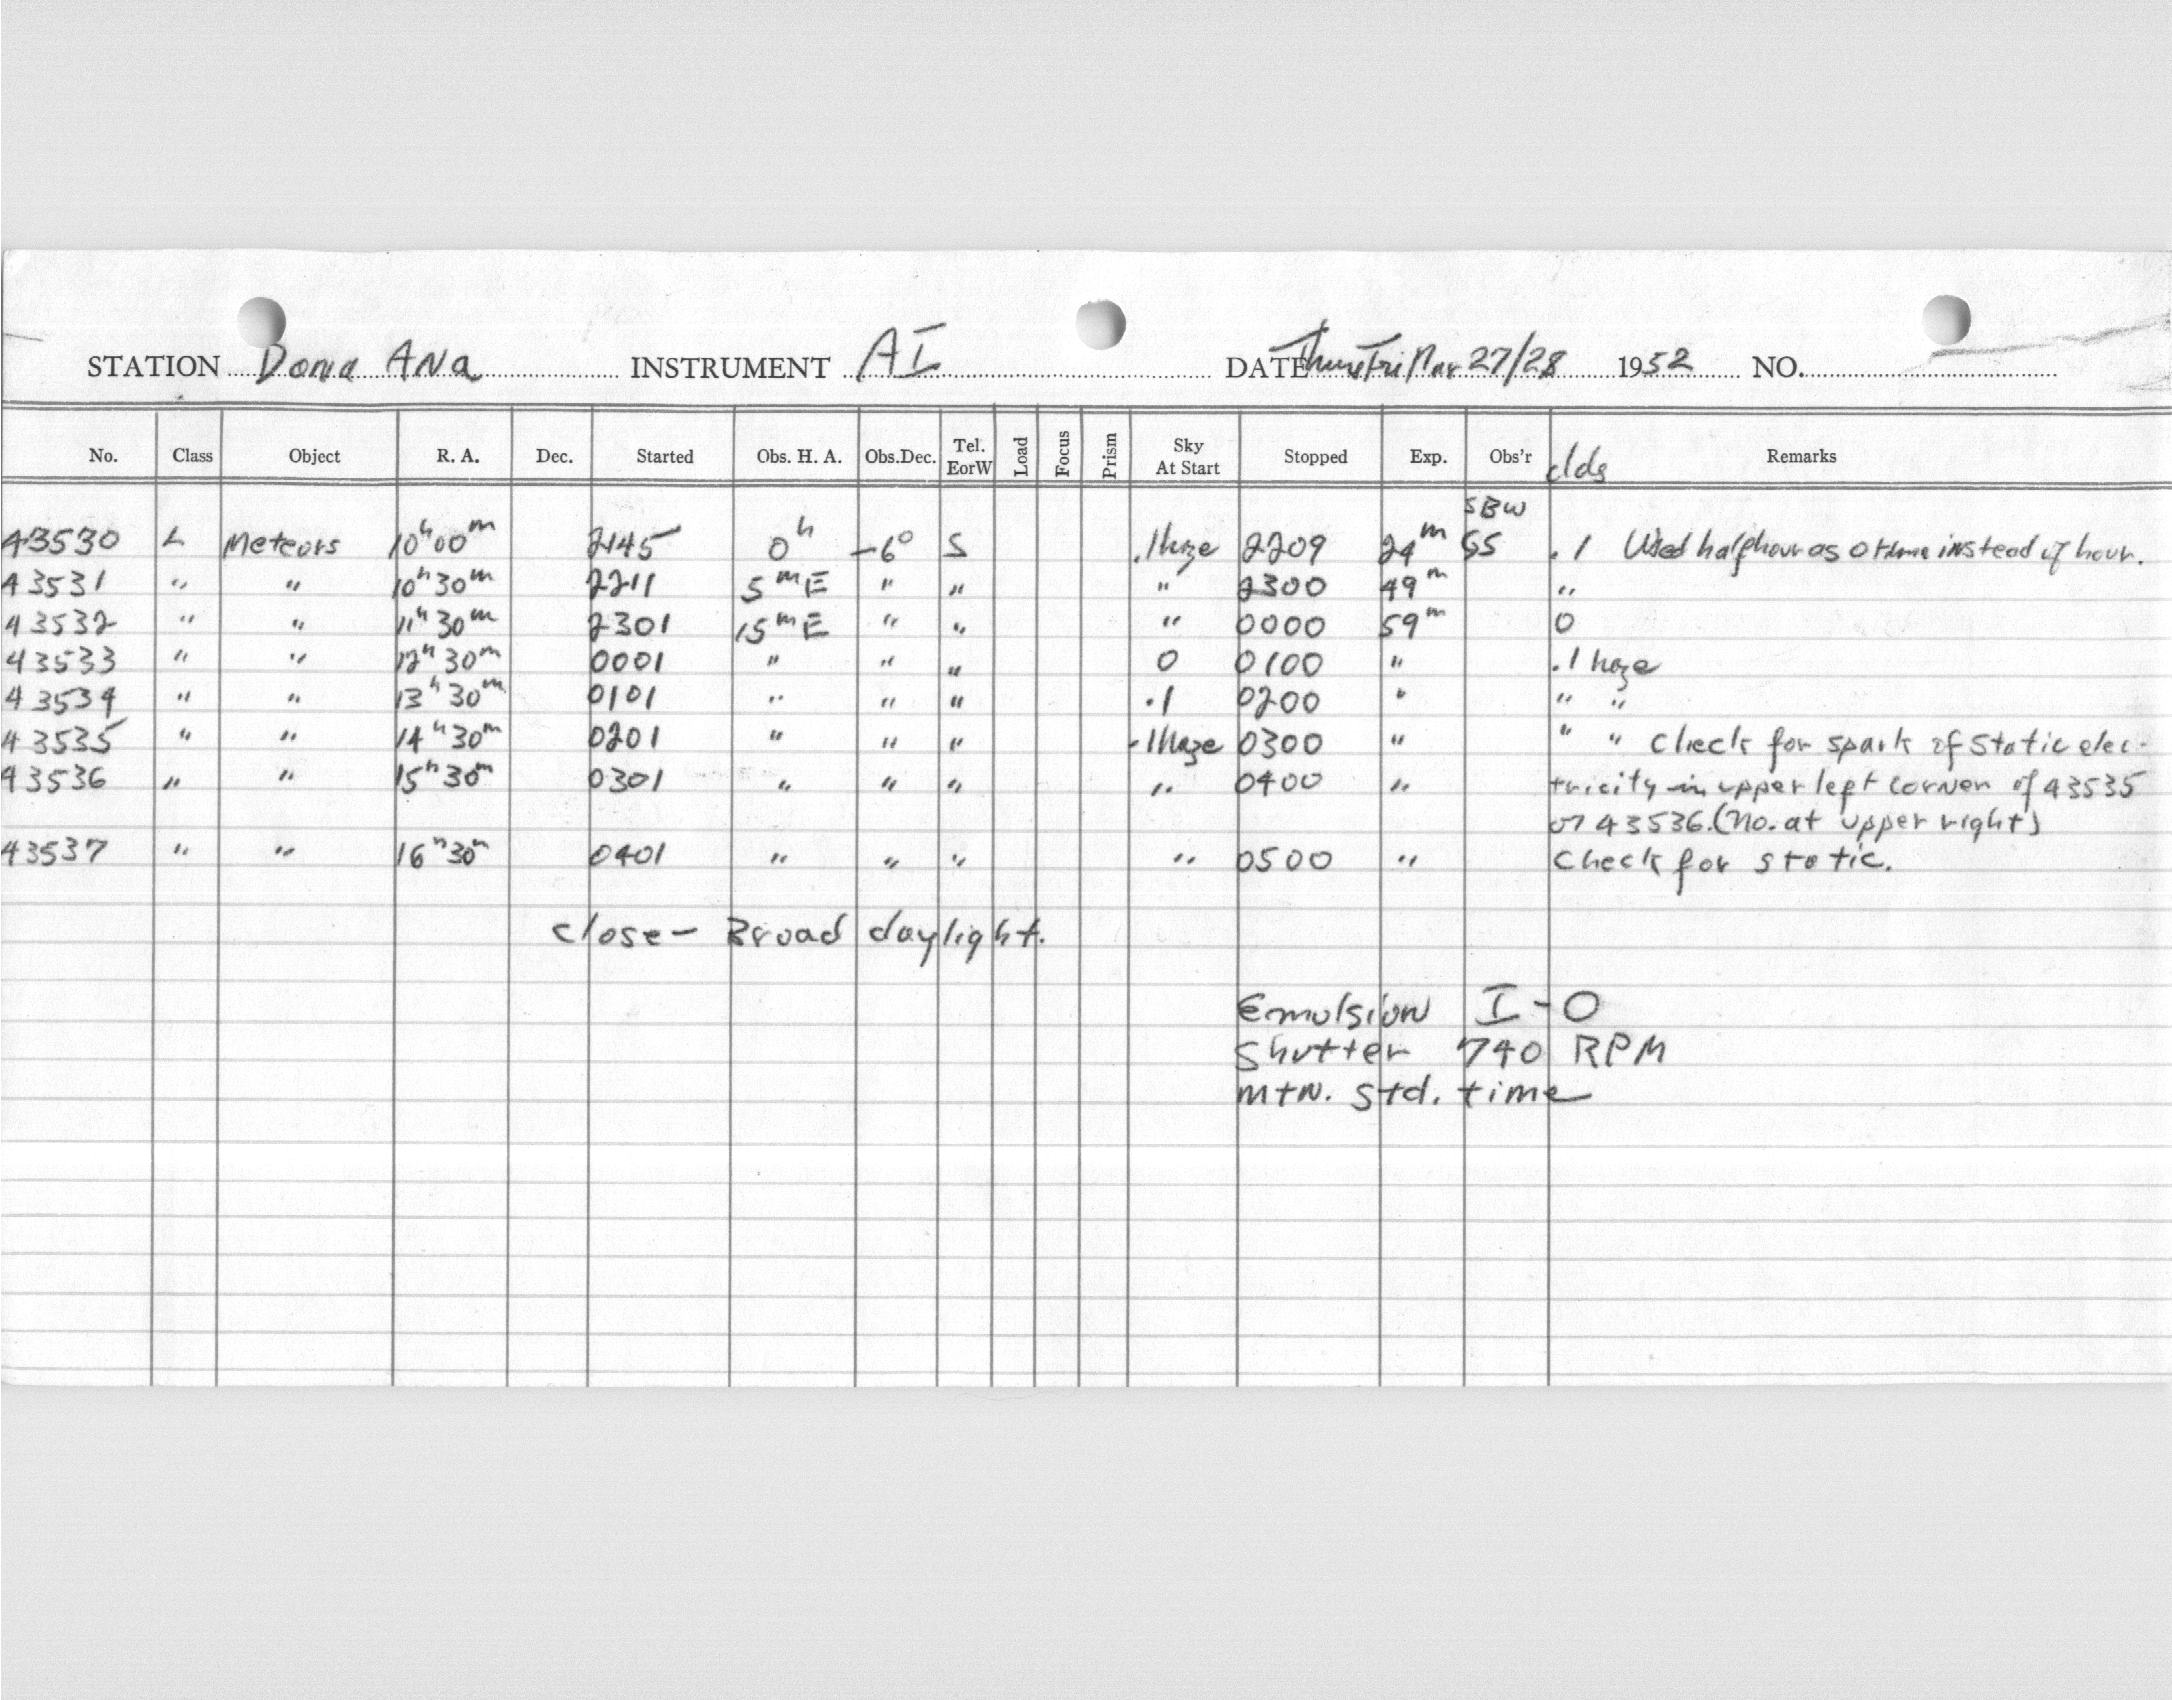 STATION Dona Ana INSTRUMENT AI DATE Thurs Fri Mar 27/28 1952 NO.
No. Class Object R. A. Dec. Started Obs. H. A. Obs.Dec. Tel. EorW Load Focus Prism Sky At Start Stopped Exp. Obs'r clds Remarks
SBW
43530 L Meteors 10h00m 2145 0h -6° S .1 haze 2209 24m SS .1 Used half hour as 0 time instead of hour.
43531 " " 10h30m 2211 5mE " " " 2300 49m "
43532 " " 11h30m 2301 15mE " " " 0000 59m 0
43533 " " 12h30m 0001 " " " 0 0100 " .1 haze
43534 " " 13h30m 0101 " " " .1 0200 " " "
43535 " " 14h30m 0201 " " " .1 haze 0300 " " " Check for spark of static elec-
43536 " " 15h30m 0301 " " " " 0400 " tricity in upper left corner of 43535
or 43536. (No. at upper right)
43537 " " 16h30m 0401 " " " " 0500 " Check for static.
close - Broad daylight.
Emulsion I-O
Shutter 740 RPM
mtn. std. time